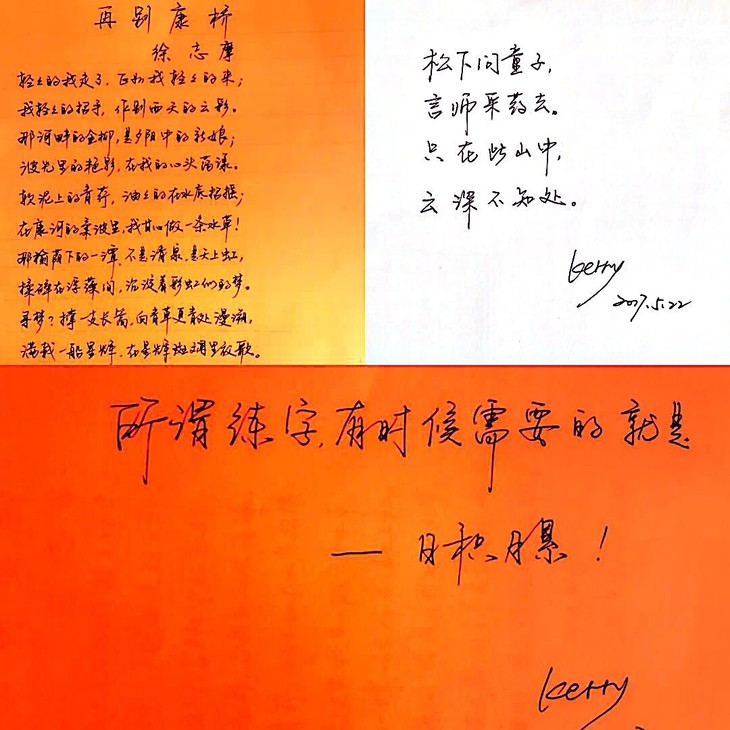 再别康桥
徐志摩
轻轻的我走了,正如我轻轻的来;
我轻轻的招手,作别西天的云彩。
那河畔的金柳,是夕阳中的新娘;
波光里的艳影,在我的心头荡漾。
软泥上的青荇,油油的在水底招摇;
在康河的柔波里,我甘心做一条水草!
那榆荫下的一潭,不是清泉,是天上虹,
揉碎在浮藻间,沉淀着彩虹似的梦。
寻梦?撑一支长篙,向青草更青处漫溯,
满载一船星辉,在星辉斑斓里放歌。
松下问童子,
言师采药去。
只在此山中,
云深不知处。
kerry
2017.5.22
所谓练字,有时候需要的就是
— 日积月累!
kerry